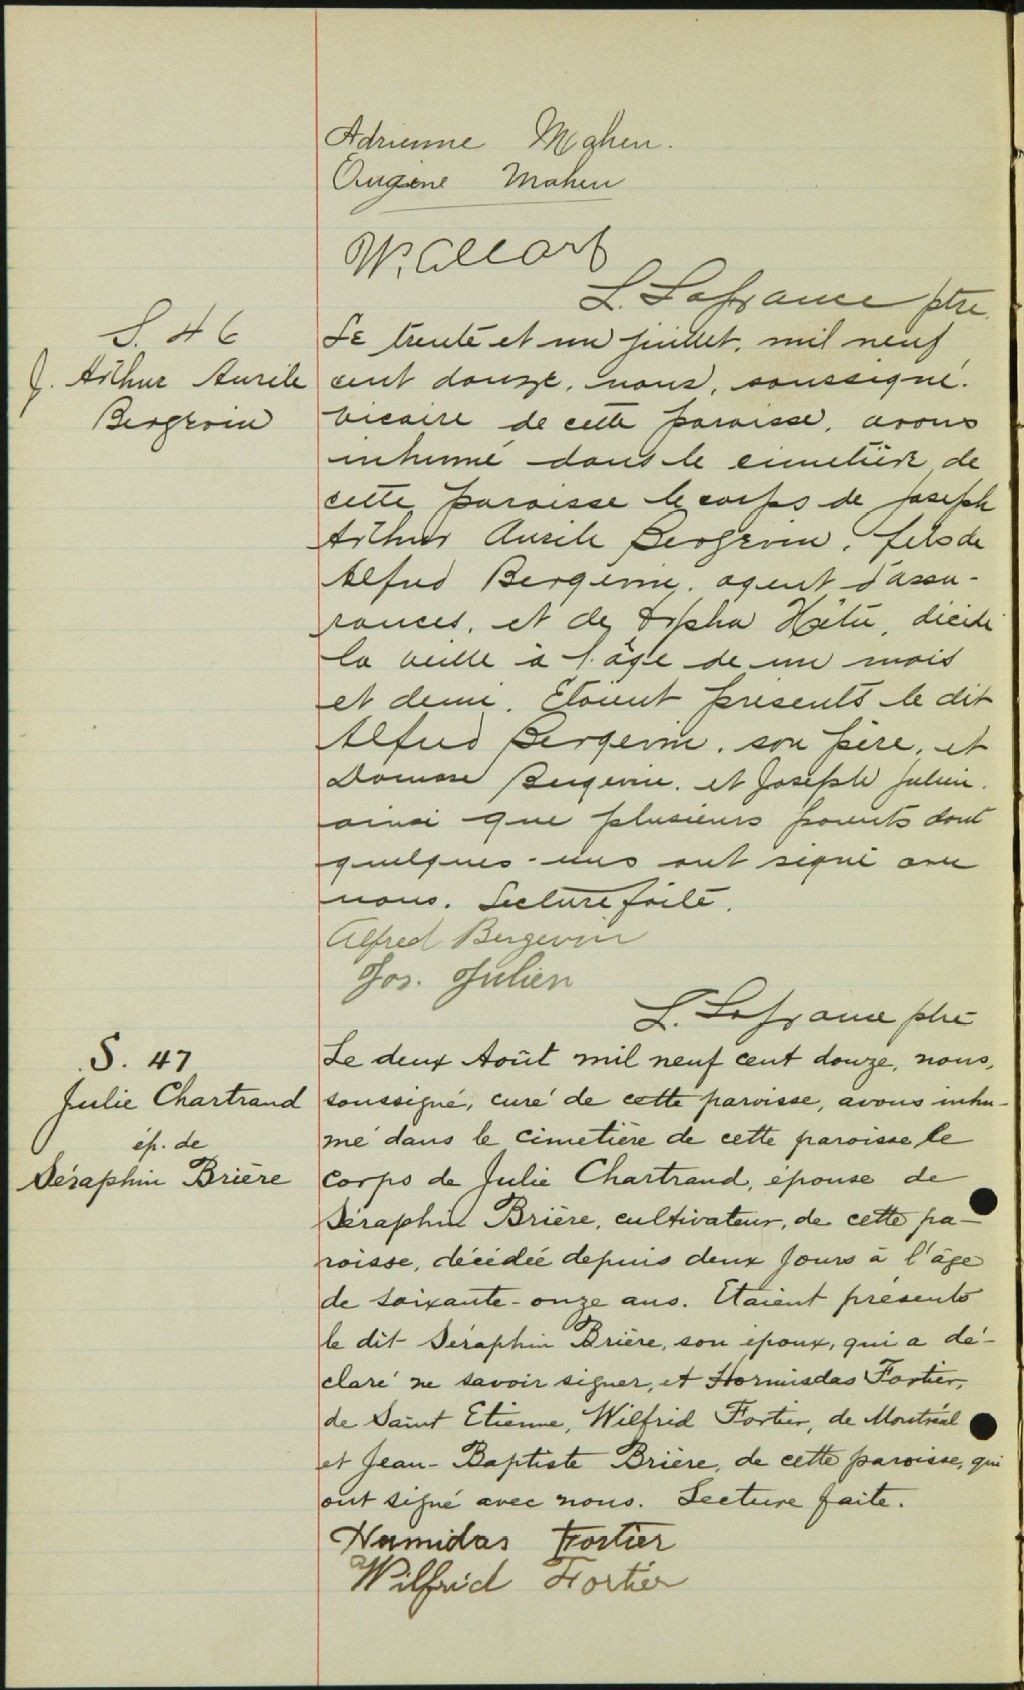 Adrienne Mahen.
Eugène Mahen
W. Allard
L. Lafrance ptre.
S. 46
J. Arthur Aurile
Bergevin
Le trente et un juillet, mil neuf
cent douze, nous, soussigné.
vicaire de cette paroisse, avons
inhumé dans le cimetière de
cette paroisse le corps de Joseph
Arthur Aurile Bergevin, fils de
Alfred Bergevin, agent d'assu-
rances, et de Hétu, décédé
la veille à l'âge de un mois
et demi. Etaient présents le dit
Alfred Bergevin, son père, et
Damase Bergevin, et Joseph Julien.
ainsi que plusieurs parents dont
quelques-uns ont signé avec
nous. Lecture faite.
Alfred Bergevin
Jos. Julien
L. Lafrance ptre
S. 47
Julie Chartrand
ép. de
Séraphin Brière
Le deux Août mil neuf cent douze, nous,
soussigné, curé de cette paroisse, avons inhu-
mé dans le cimetière de cette paroisse le
corps de Julie Chartrand, épouse de
Séraphin Brière, cultivateur, de cette pa-
roisse, décédée depuis deux jours à l'âge
de soixante-onze ans. Etaient présents
le dit Séraphin Brière, son époux, qui a dé-
claré ne savoir signer, et Hormisdas Fortier,
de Saint Etienne, Wilfrid Fortier, de Montréal
et Jean-Baptiste Brière, de cette paroisse, qui
ont signé avec nous. Lecture faite.
Hormidas Fortier
Wilfrid Fortier